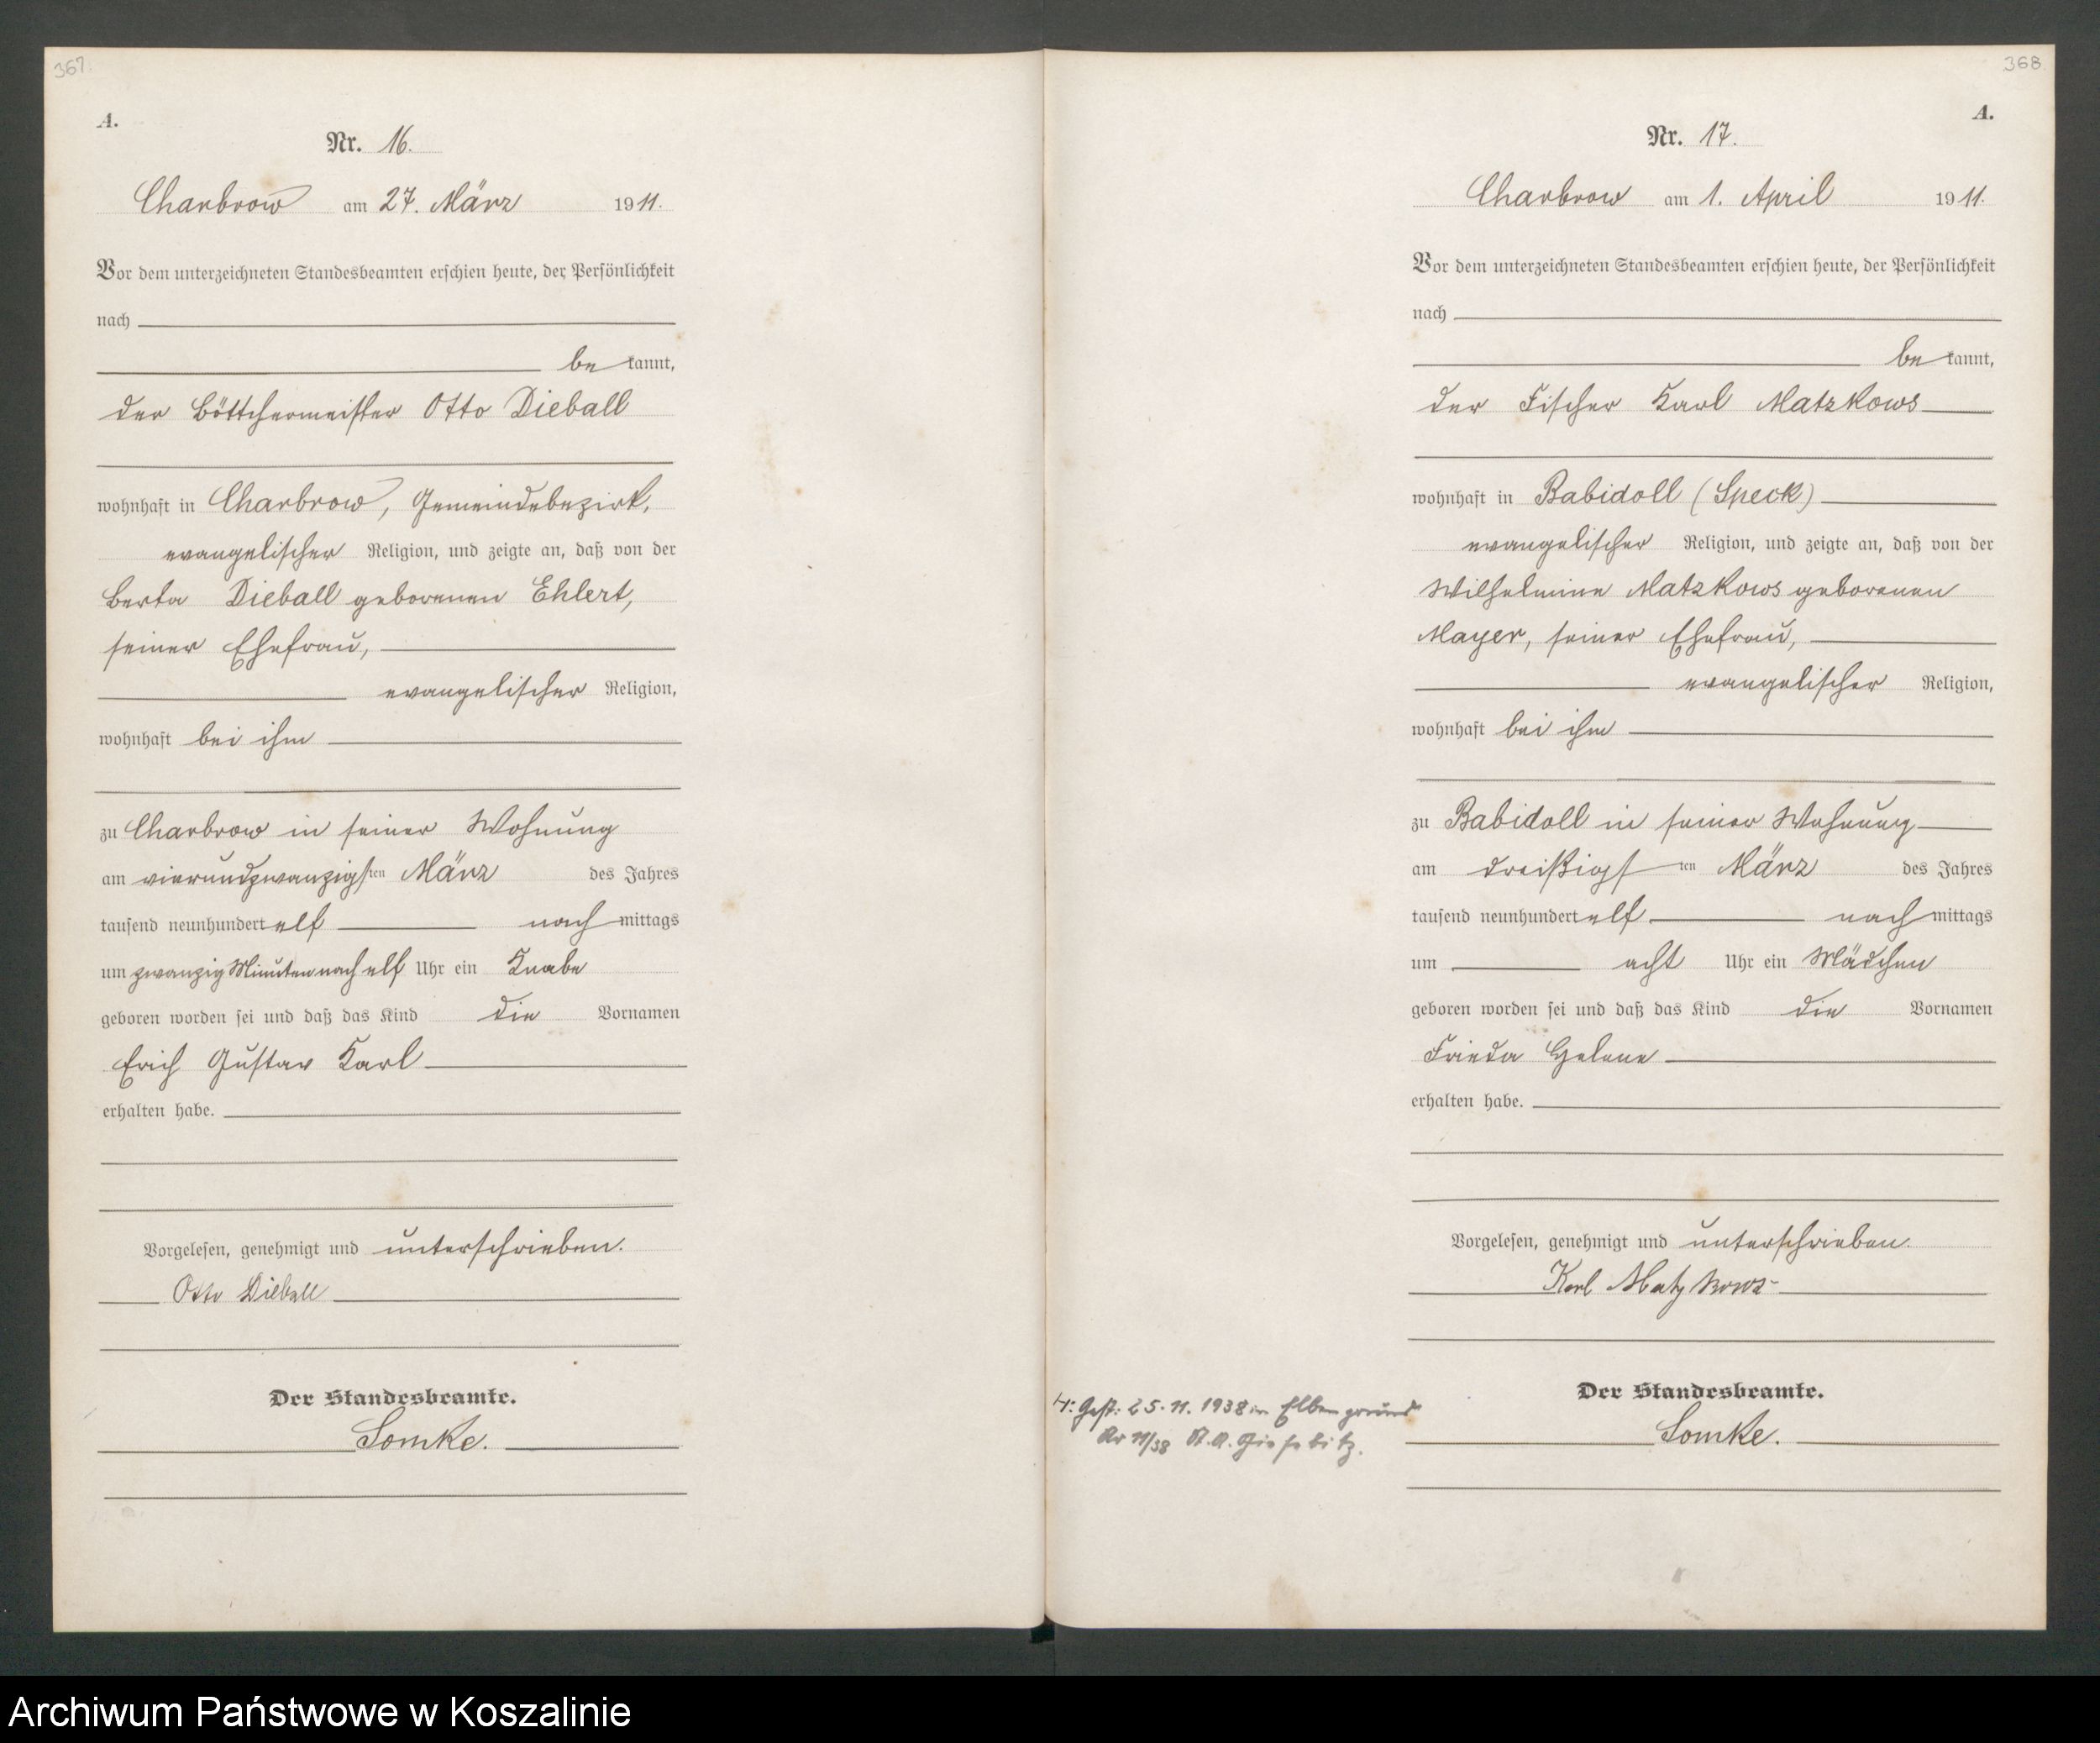 367.
A.
Nr. 16.
Charbrow am 27. März 1911.
Vor dem unterzeichneten Standesbeamten erschien heute, der Persönlichkeit
nach
bekannt,
der Böttchermeister Otto Dieball
wohnhaft in Charbrow, Gemeindebezirk,
evangelischer Religion, und zeigte an, daß von der
Berta Dieball geborenen Ehlert,
seiner Ehefrau,
evangelischer Religion,
wohnhaft bei ihm
zu Charbrow in seiner Wohnung
am vierundzwanzigsten März des Jahres
tausend neunhundert elf nachmittags
um zwanzig Minuten nach elf Uhr ein Knabe
geboren worden sei und daß das Kind die Vornamen
Erich Gustav Karl
erhalten habe.
Vorgelesen, genehmigt und unterschrieben.
Otto Dieball
Der Standesbeamte.
Somke.
368
A.
Nr. 17.
Charbrow am 1. April 1911.
Vor dem unterzeichneten Standesbeamten erschien heute, der Persönlichkeit
nach
bekannt,
der Fischer Karl Matzkows
wohnhaft in Babidoll (Speck)
evangelischer Religion, und zeigte an, daß von der
Wilhelmine Matzkows geborenen
Mayer, seiner Ehefrau,
evangelischer Religion,
wohnhaft bei ihm
zu Babidoll in seiner Wohnung
am dreißigsten März des Jahres
tausend neunhundert elf nachmittags
um acht Uhr ein Mädchen
geboren worden sei und daß das Kind die Vornamen
Frieda Helene
erhalten habe.
Vorgelesen, genehmigt und unterschrieben.
Karl Matzkows
Der Standesbeamte.
Somke.
Gest: 25.11.1938 in
Nr 11/38 St.A. Giesebitz.
Archiwum Państwowe w Koszalinie